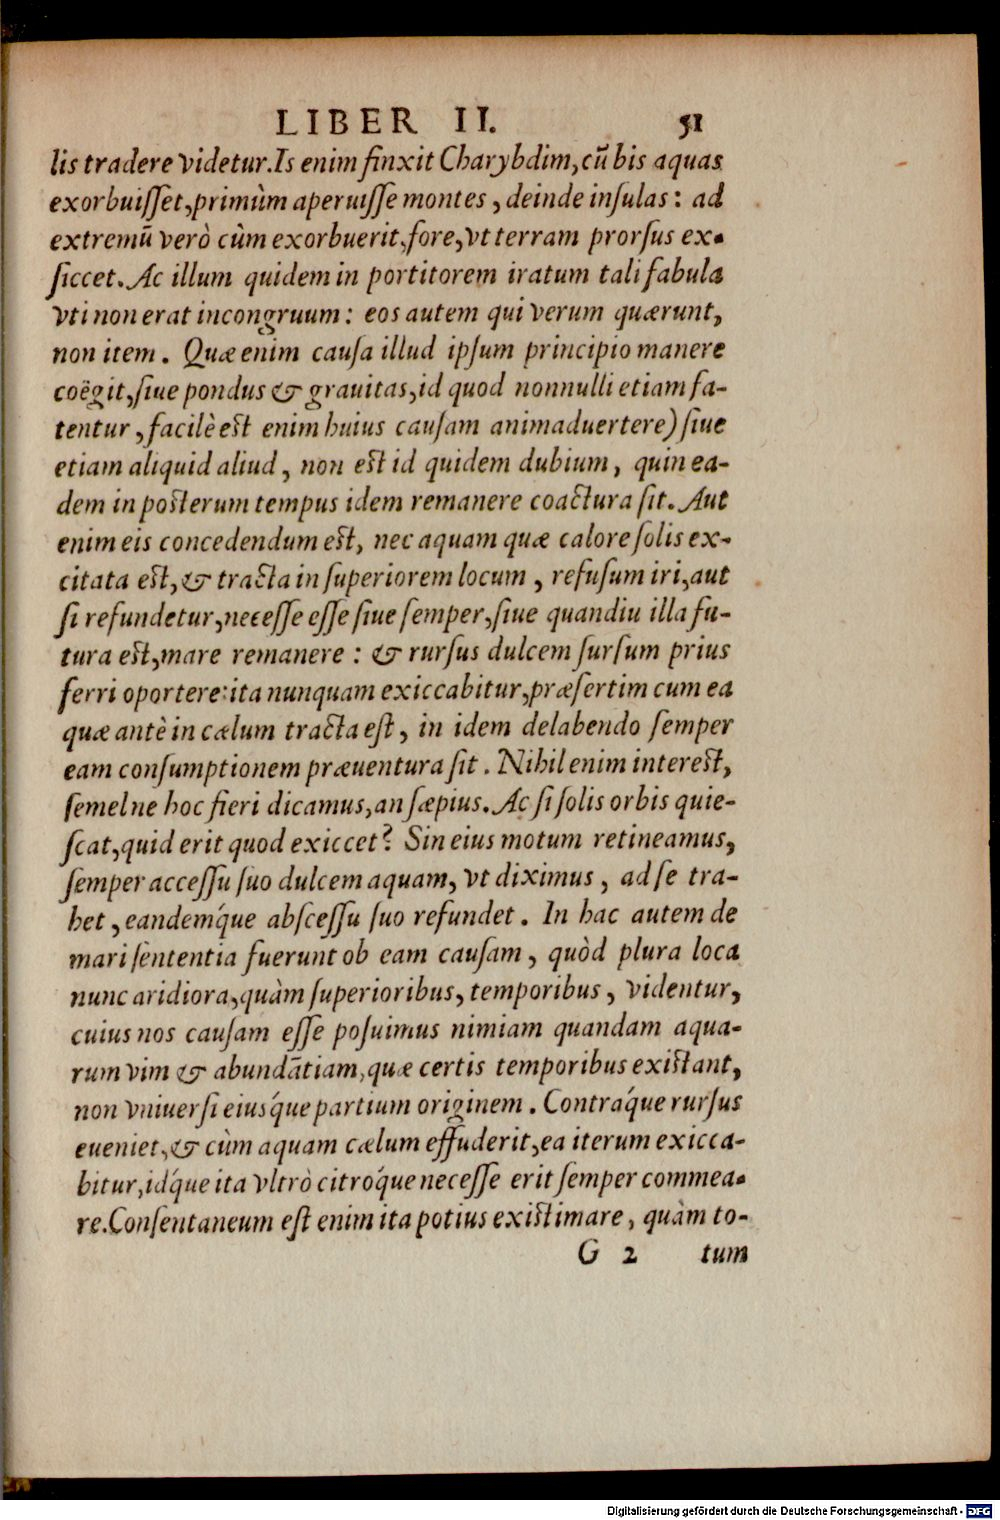 LIBER II. 51
lis tradere videtur. Is enim finxit Charybdim, cũ bis aquas
exorbuiſſet, primùm aperuiſſe montes, deinde inſulas: ad
extremũ verò cùm exorbuerit, fore, vt terram prorſus ex-
ſiccet. Ac illum quidem in portitorem iratum tali fabula
vti non erat incongruum: eos autem qui verum quærunt,
non item. Quæ enim cauſa illud ipſum principio manere
coëgit, ſiue pondus & grauitas, id quod nonnulli etiam fa-
tentur, facilè eſt enim huius cauſam animaduertere) ſiue
etiam aliquid aliud, non eſt id quidem dubium, quin ea-
dem in poſterum tempus idem remanere coactura ſit. Aut
enim eis concedendum eſt, nec aquam quæ calore ſolis ex-
citata eſt, & tracta in ſuperiorem locum, refuſum iri, aut
ſi refundetur, neceſſe eſſe ſiue ſemper, ſiue quandiu illa fu-
tura eſt, mare remanere: & rurſus dulcem ſurſum prius
ferri oportere: ita nunquam exiccabitur, præſertim cum ea
quæ antè in cælum tracta eſt, in idem delabendo ſemper
eam conſumptionem præuentura ſit. Nihil enim intereſt,
ſemelne hoc fieri dicamus, an ſæpius. Ac ſi ſolis orbis quie-
ſcat, quid erit quod exiccet? Sin eius motum retineamus,
ſemper acceſſu ſuo dulcem aquam, vt diximus, ad ſe tra-
het, eandemq́ue abſceſſu ſuo refundet. In hac autem de
mari ſententia fuerunt ob eam cauſam, quòd plura loca
nunc aridiora, quàm ſuperioribus, temporibus, videntur,
cuius nos cauſam eſſe poſuimus nimiam quandam aqua-
rum vim & abundãtiam, quæ certis temporibus exiſtant,
non vniuerſi eiusq́ue partium originem. Contraq́ue rurſus
eueniet, & cùm aquam cælum effuderit, ea iterum exicca-
bitur, idq́ue ita vltrò citroq́ue neceſſe erit ſemper commea-
re. Conſentaneum eſt enim ita potius exiſtimare, quàm to-
G 2 tum
Digitalisierung gefördert durch die Deutsche Forschungsgemeinschaft - DFG